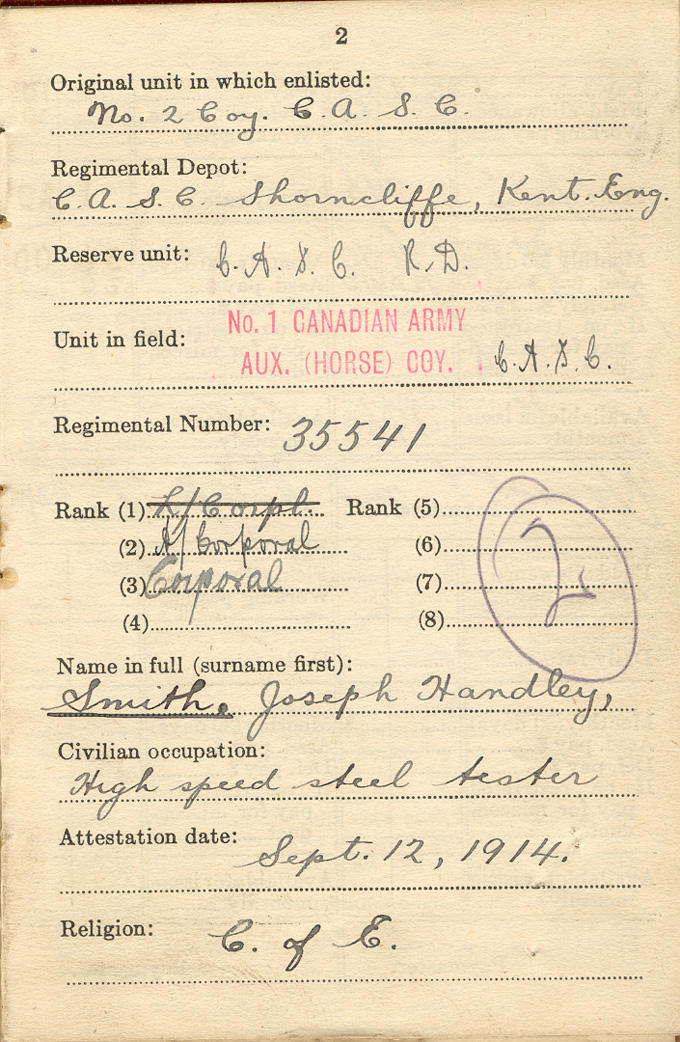 2
Original unit in which enlisted:
No. 2 Coy. C. A. S. C.
Regimental Depot:
C. A. S. C. Shorncliffe, Kent. Eng.
Reserve unit: C. A. S. C. R. D.
Unit in field: No. 1 CANADIAN ARMY
AUX. (HORSE) COY. C. A. S. C.
Regimental Number: 35541
Rank (1) L/Corpl. Rank (5)
(2) A/Corporal (6)
(3) Corporal (7)
(4) (8)
2
Name in full (surname first):
Smith. Joseph Handley,
Civilian occupation:
High speed steel tester
Attestation date: Sept. 12, 1914.
Religion: C. of E.